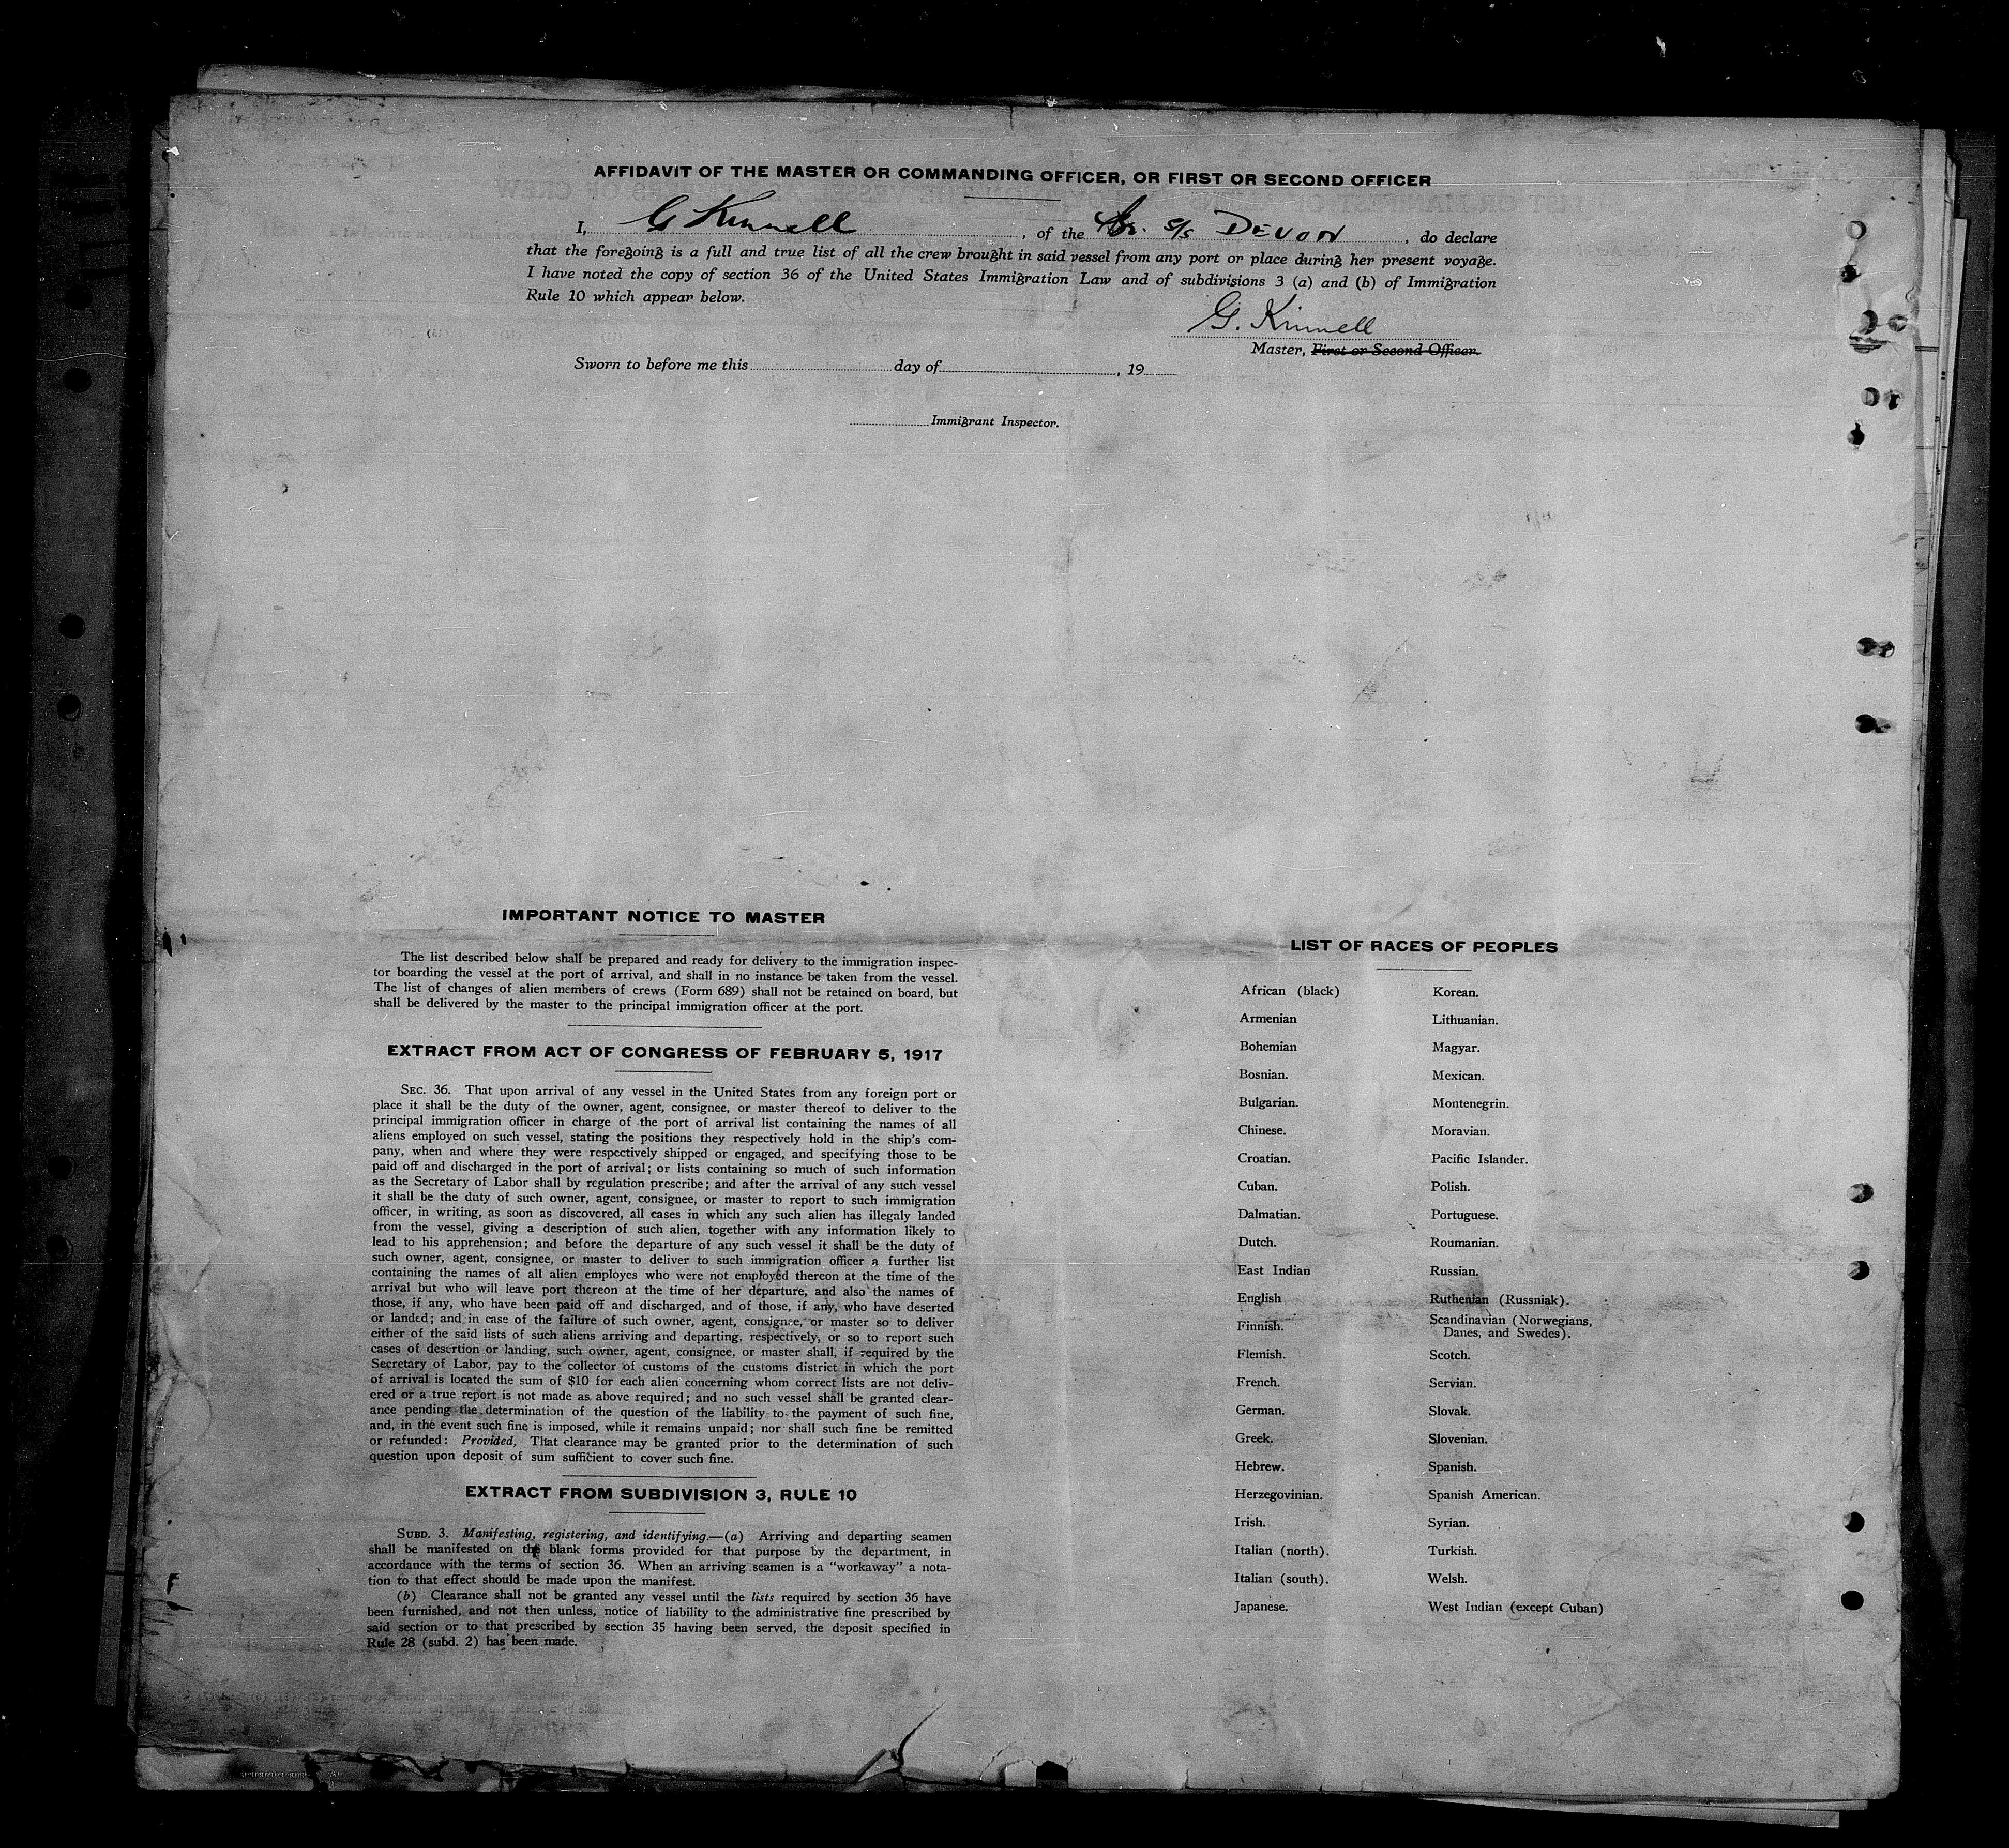 AFFIDAVIT OF THE MASTER OR COMMANDING OFFICER, OR FIRST OR SECOND OFFICER
I, G Kinnell, of the Br. S/S DEVON, do declare
that the foregoing is a full and true list of all the crew brought in said vessel from any port or place during her present voyage.
I have noted the copy of section 36 of the United States Immigration Law and of subdivisions 3 (a) and (b) of Immigration
Rule 10 which appear below.
G. Kinnell
Master, First or Second Officer.
Sworn to before me this day of , 19
Immigrant Inspector.
IMPORTANT NOTICE TO MASTER
The list described below shall be prepared and ready for delivery to the immigration inspec-
tor boarding the vessel at the port of arrival, and shall in no instance be taken from the vessel.
The list of changes of alien members of crews (Form 689) shall not be retained on board, but
shall be delivered by the master to the principal immigration officer at the port.
EXTRACT FROM ACT OF CONGRESS OF FEBRUARY 5, 1917
SEC. 36. That upon arrival of any vessel in the United States from any foreign port or
place it shall be the duty of the owner, agent, consignee, or master thereof to deliver to the
principal immigration officer in charge of the port of arrival list containing the names of all
aliens employed on such vessel, stating the positions they respectively hold in the ship's com-
pany, when and where they were respectively shipped or engaged, and specifying those to be
paid off and discharged in the port of arrival; or lists containing so much of such information
as the Secretary of Labor shall by regulation prescribe; and after the arrival of any such vessel
it shall be the duty of such owner, agent, consignee, or master to report to such immigration
officer, in writing, as soon as discovered, all cases in which any such alien has illegaly landed
from the vessel, giving a description of such alien, together with any information likely to
lead to his apprehension; and before the departure of any such vessel it shall be the duty of
such owner, agent, consignee, or master to deliver to such immigration officer a further list
containing the names of all alien employes who were not employed thereon at the time of the
arrival but who will leave port thereon at the time of her departure, and also the names of
those, if any, who have been paid off and discharged, and of those, if any, who have deserted
or landed; and in case of the failure of such owner, agent, consignee, or master so to deliver
either of the said lists of such aliens arriving and departing, respectively, or so to report such
cases of desertion or landing, such owner, agent, consignee, or master shall, if required by the
Secretary of Labor, pay to the collector of customs of the customs district in which the port
of arrival is located the sum of $10 for each alien concerning whom correct lists are not deliv-
ered or a true report is not made as above required; and no such vessel shall be granted clear-
ance pending the determination of the question of the liability to the payment of such fine,
and, in the event such fine is imposed, while it remains unpaid; nor shall such fine be remitted
or refunded: Provided, That clearance may be granted prior to the determination of such
question upon deposit of sum sufficient to cover such fine.
EXTRACT FROM SUBDIVISION 3, RULE 10
SUBD. 3. Manifesting, registering, and identifying.—(a) Arriving and departing seamen
shall be manifested on the blank forms provided for that purpose by the department, in
accordance with the terms of section 36. When an arriving seamen is a "workaway" a nota-
tion to that effect should be made upon the manifest.
(b) Clearance shall not be granted any vessel until the lists required by section 36 have
been furnished, and not then unless, notice of liability to the administrative fine prescribed by
said section or to that prescribed by section 35 having been served, the deposit specified in
Rule 28 (subd. 2) has been made.
LIST OF RACES OF PEOPLES
African (black) Korean.
Armenian Lithuanian.
Bohemian Magyar.
Bosnian. Mexican.
Bulgarian. Montenegrin.
Chinese. Moravian.
Croatian. Pacific Islander.
Cuban. Polish.
Dalmatian. Portuguese.
Dutch. Roumanian.
East Indian Russian.
English Ruthenian (Russniak).
Finnish. Scandinavian (Norwegians,
Danes, and Swedes).
Flemish. Scotch.
French. Servian.
German. Slovak.
Greek. Slovenian.
Hebrew. Spanish.
Herzegovinian. Spanish American.
Irish. Syrian.
Italian (north). Turkish.
Italian (south). Welsh.
Japanese. West Indian (except Cuban)